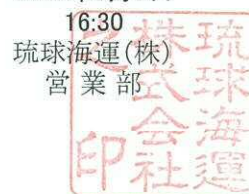 16:30
琉球海運(株)
営業部
琉球海運
株式会社
印